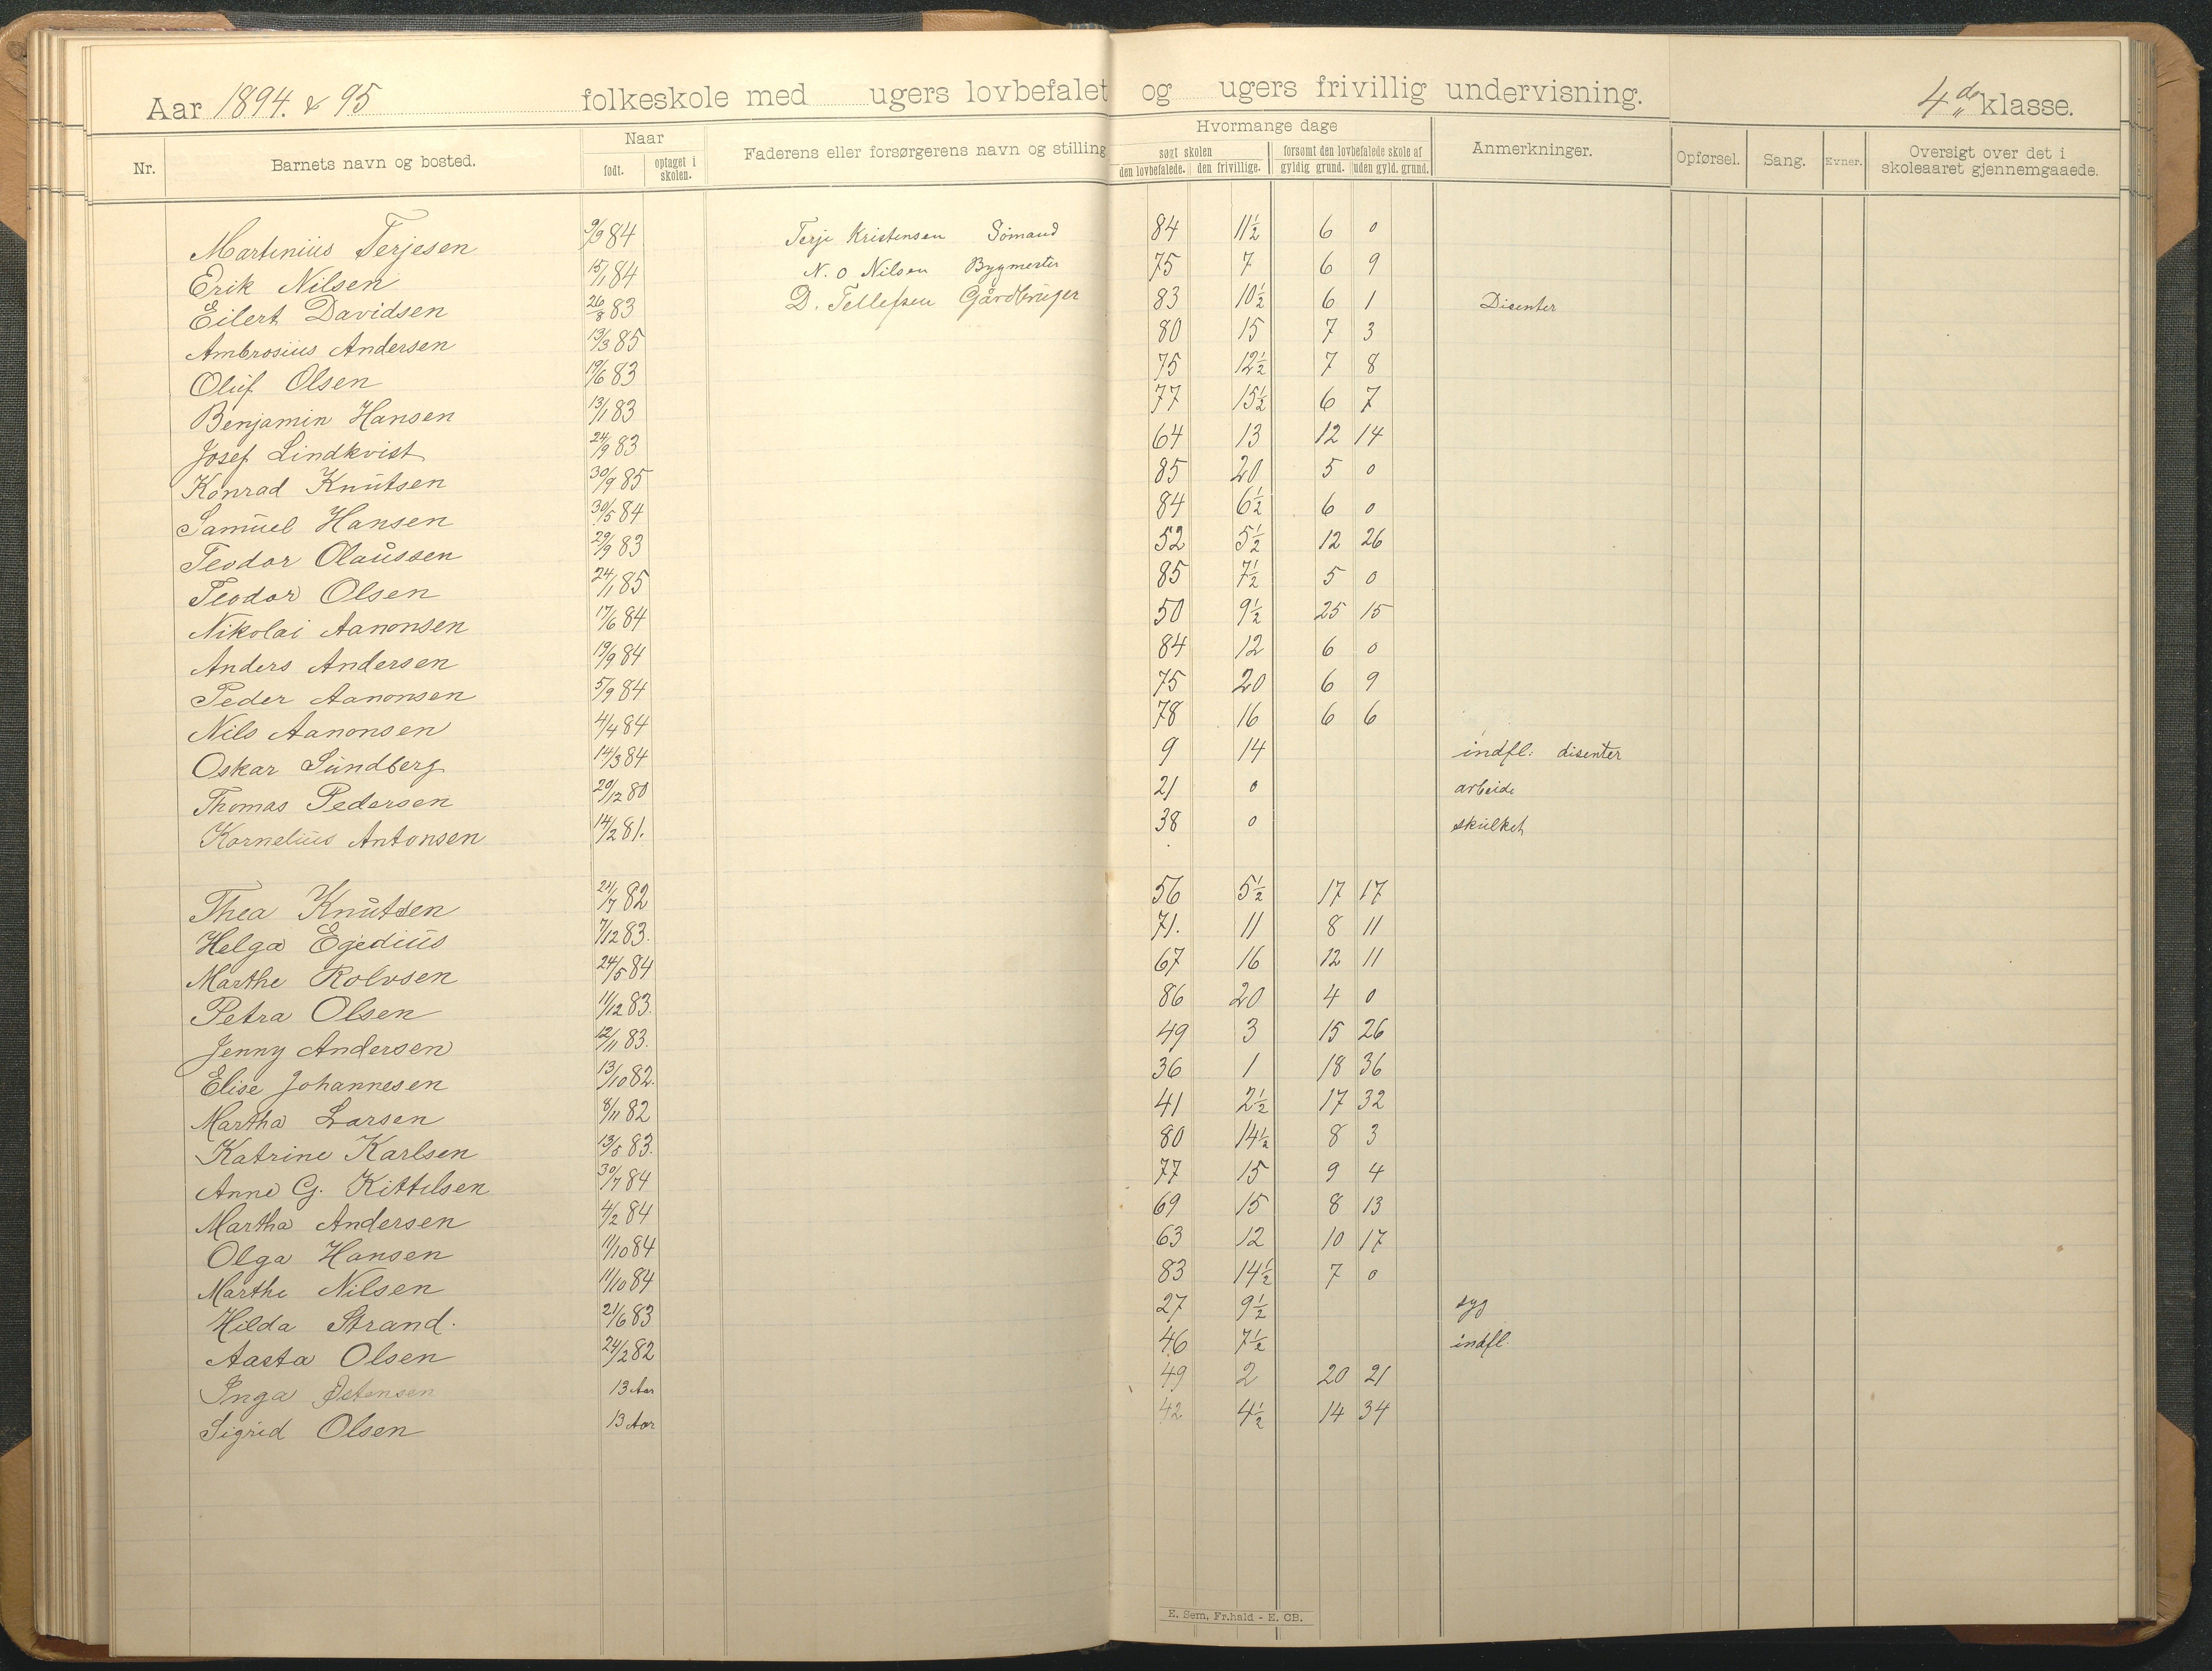 Aar 1894. & 95 folkeskole med ugers lovbefalet og ugers frivillig undervisning. 4de klasse.
Nr. Barnets navn og bosted. Naar født. optaget i skolen. Faderens eller forsørgerens navn og stilling Hvormange dage søgt skolen den lovbefalede. den frivillige. forsømt den lovbefalede skole af gyldig grund. uden gyld. grund. Anmerkninger. Opførsel. Sang. Evner. Oversigt over det i skoleaaret gjennemgaaede.
Martinius Terjesen 9/9 84 Terje Kristensen Sømand 84 11½ 6 0
Erik Nilsen 15/1 84 N. O Nilsen Bygmester 75 7 6 9
Eilert Davidsen 26/8 83 D. Tellefsen Gårdbruger 83 10½ 6 1 Disenter
Ambrosius Andersen 13/3 85 80 15 7 3
Oluf Olsen 19/6 83 75 12½ 7 8
Benjamin Hansen 13/1 83 77 15½ 6 7
Josef Lindkvist 24/9 83 64 13 12 14
Konrad Knutsen 30/9 85 85 20 5 0
Samuel Hansen 30/5 84 84 6½ 6 0
Teodor Olaussen 29/9 83 52 5½ 12 26
Teodor Olsen 24/1 85 85 7½ 5 0
Nikolai Aanonsen 17/6 84 50 9½ 25 15
Anders Andersen 19/9 84 84 12 6 0
Peder Aanonsen 5/9 84 75 20 6 9
Nils Aanonsen 4/4 84 78 16 6 6
Oskar Sundberg 14/3 84 9 14 indfl: disenter
Thomas Pedersen 20/12 80 21 0 arbeide
Kornelius Antonsen 14/2 81. 38 0 skulket
Thea Knutsen 21/7 82 56 5½ 17 17
Helga Egedius 7/12 83. 71. 11 8 11
Marthe Rolvsen 24/5 84 67 16 12 11
Petra Olsen 11/12 83. 86 20 4 0
Jenny Andersen 12/11 83. 49 3 15 26
Elise Johannesen 13/10 82. 36 1 18 36
Martha Larsen 8/11 82 41 2½ 17 32
Katrine Karlsen 13/5 83. 80 14½ 8 3
Anne G. Kittelsen 30/7 84 77 15 9 4
Martha Andersen 4/2 84 69 15 8 13
Olga Hansen 11/10 84 63 12 10 17
Marthe Nilsen 11/10 84 83 14½ 7 0
Hilda Strand. 21/6 83 27 9½ syg
Aasta Olsen 24/2 82 46 7½ indfl.
Inga Østensen 13 Aar 49 2 20 21
Sigrid Olsen 13 Aar 42 4½ 14 34
E. Sem, Fr.hald - E. CB.